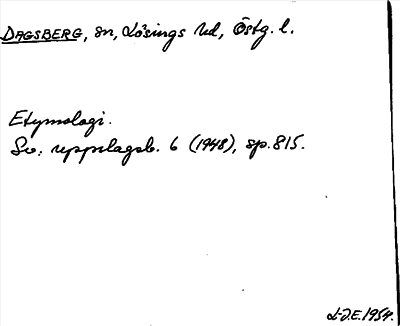 DAGSBERG, sn, Lösings hd, Östg. l.
Etymologi.
Sv. uppslagsb. 6 (1948), sp. 815.
L-J.E. 1954.